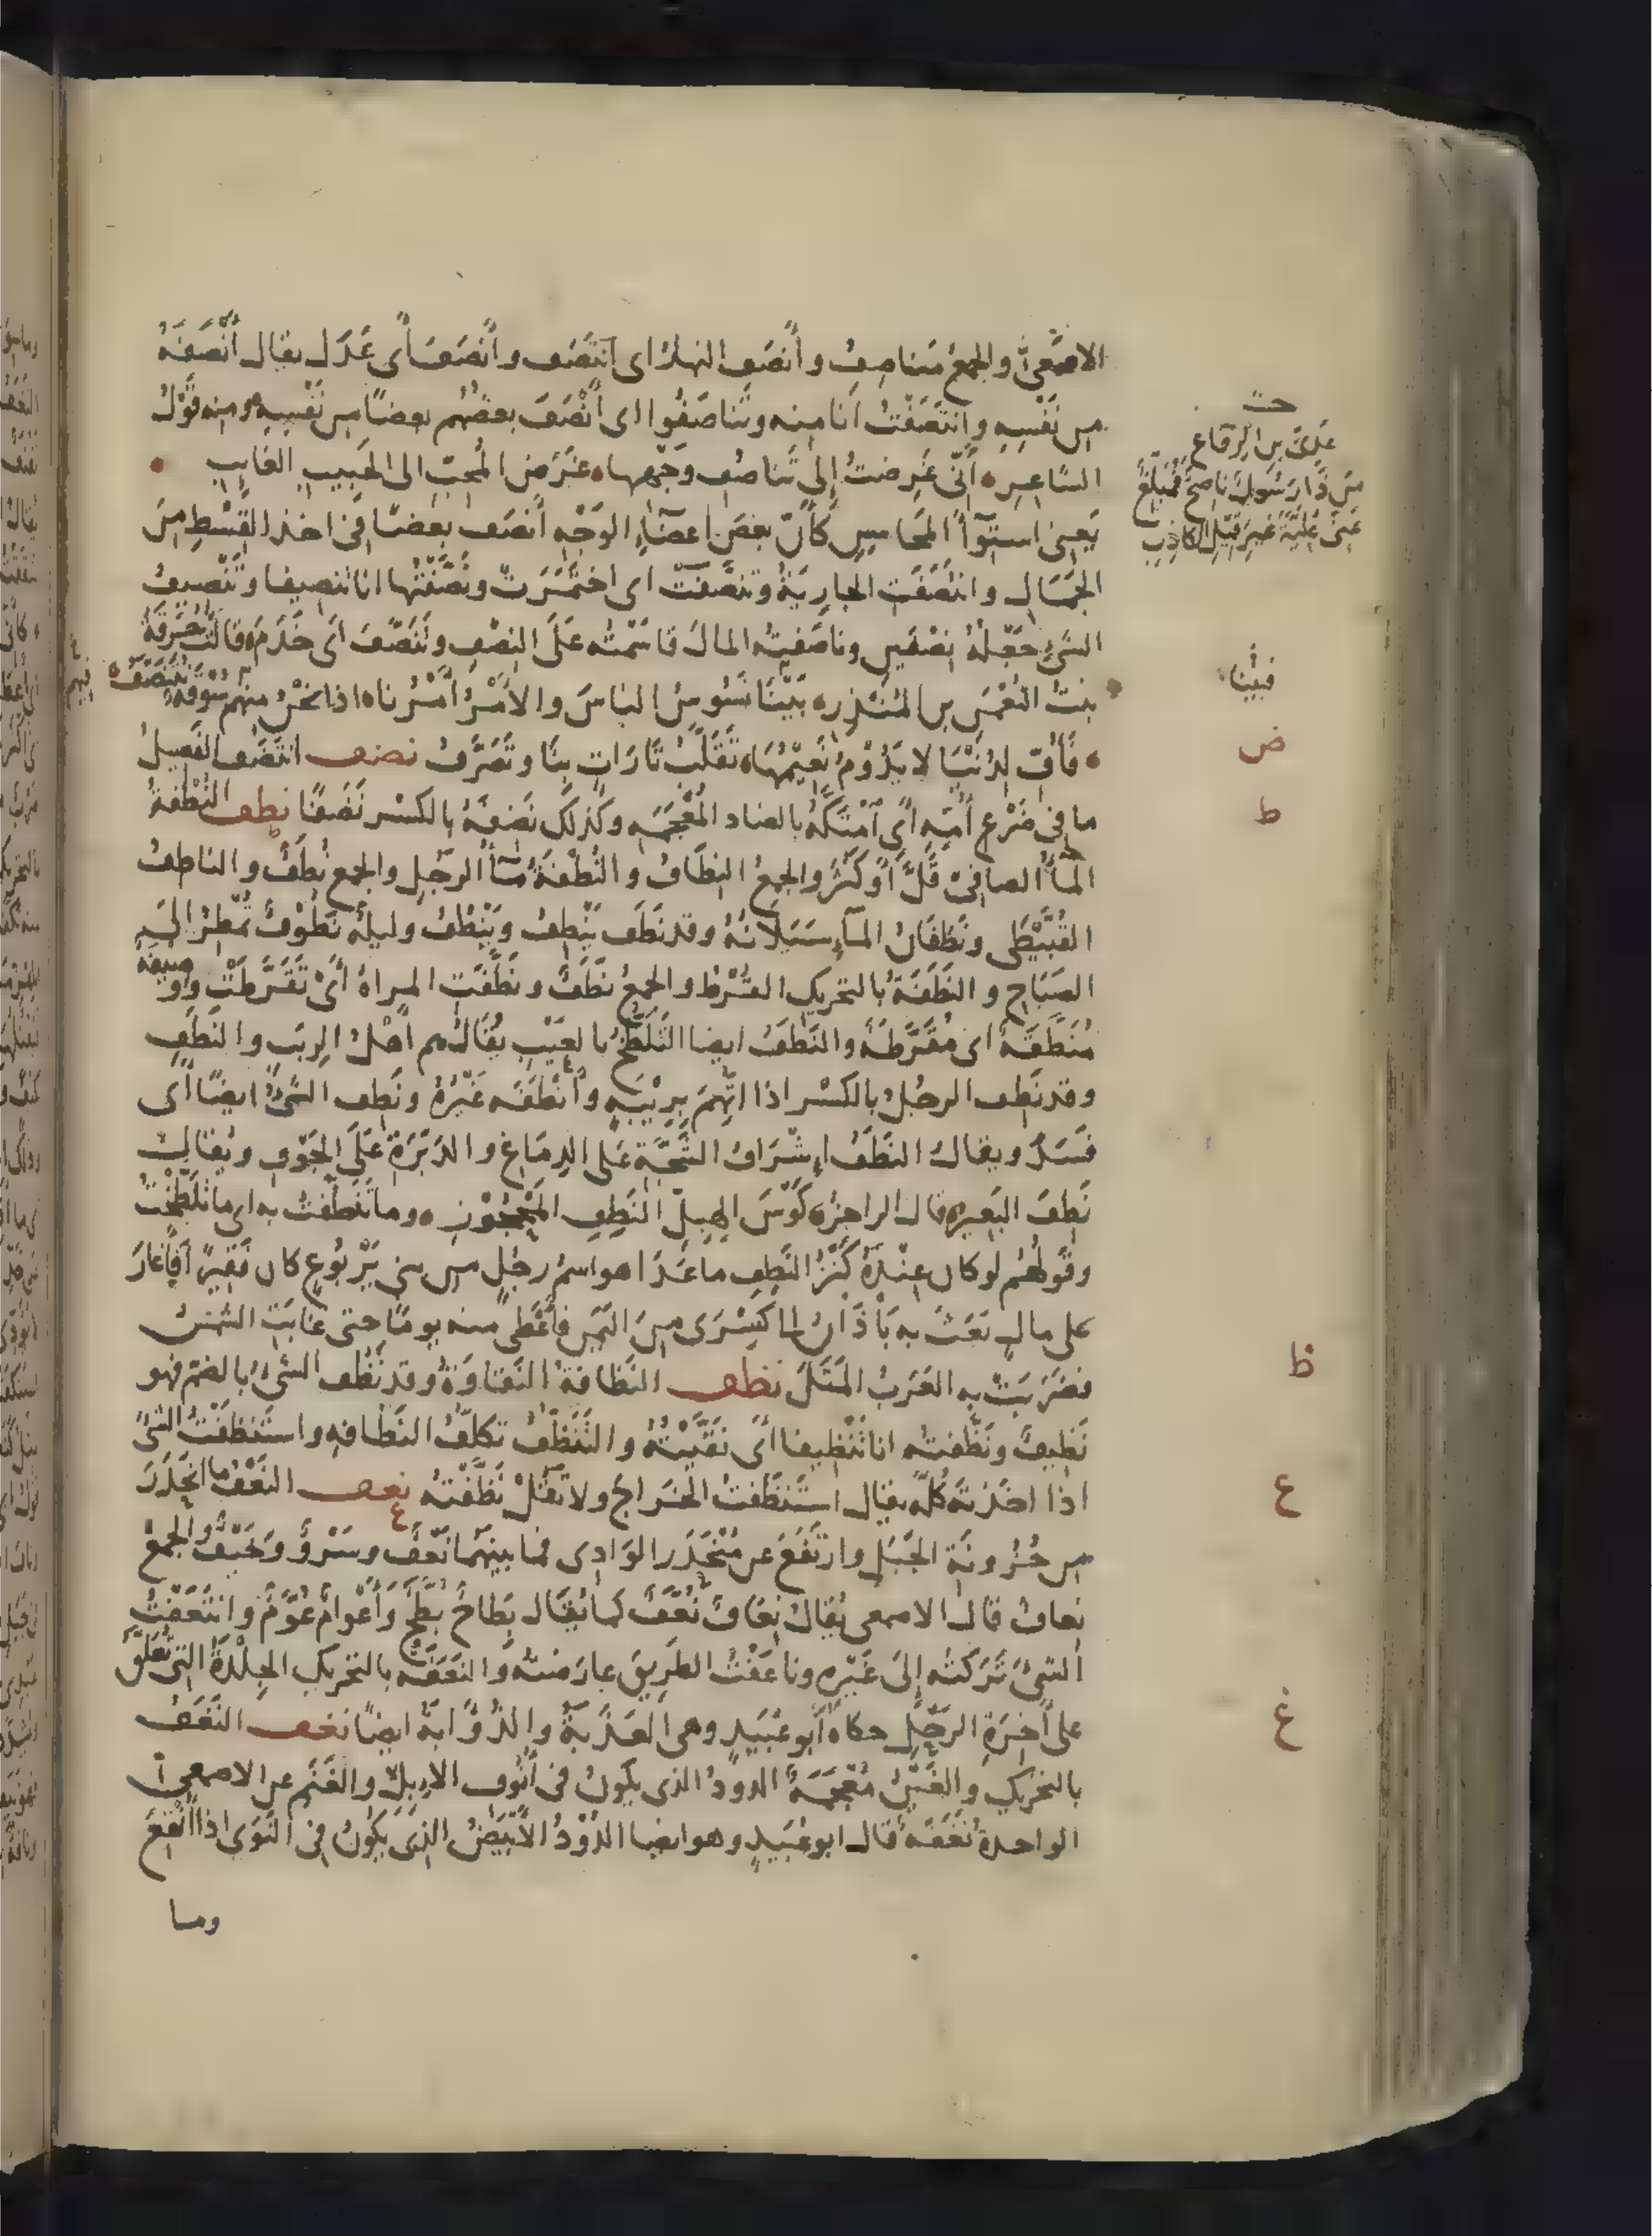 الاصمعيّ والجمعُ مَناصِفُ وأنصَف النهارُ اى انتَصَف وأنصَفَ أى عَدَل يقال أنْصَفَهُ
من نَفْسِهِ وانْتَصَفْتُ أنا منه وتَناصَفُوا اى أنْصَفَ بعضُهم بعضًا من نَفْسِهِ ومنه قَوْلُ
الشاعِرِ • أَنّى غَرِضتُ إلى تَناصُفِ وَجْهِها • غَرَضَ المُحِبّ الى الحَبِيبِ الغايِبِ •
يَعنى استِوآءَ المَحَاسِنِ كَأنّ بعضَ اعضَآءِ الوَجْهِ أنصَفَ بعضًا فى اخذ القِسْطِ مِنَ
الجَمَال وانتَصَفَتِ الجارِيَةُ وتَنصَّفَتْ اى اختَمَرَتْ ونَصَّفْتُها انا تنصيفا وتَنْصيفُ
الشَىءِ جَعْلُهُ نِصْفَينِ وناصَفتُه المالَ قاسَمْتُه عَلَى النِصْفِ وتَنَصَّفَ اَى خَدَمَ وقالَتْ حُرَقَةُ
بِنتُ النُعْمٰنِ بن المُنْذِرِ • بَيْنَا نَسُوسُ الناسَ والأَمْرُ أَمْرُنا • اذا نَحْنُ مِنْهم سُوقَةٌ نَتَنَصَّفُ •
• فَأُفٍّ لِدُنْيَا لا يَدُوْمُ نَعِيْمُهَا • تَقَلَّبُ تَارَاتٍ بِنَا وتَصَرَّفُ نضف انتَضَفَ الفَصِيلُ
ما فى ضَرْعِ أُمِّهِ أى امْتَكَّهُ بالضاد المُعْجَمَه وكَذلَك نَضِفَهُ بالكسْر نَضَفًا نطف النُطْفَةُ
المآءُ الصافِىْ قَلَّ أوْ كَثُرَ والجمعُ النِطَافُ والنُطْفَةُ مآءُ الرَجُلِ والجمع نُطَفٌ والناطِفُ
القُبَّيْطَى ونَطَفَانُ المآءِ سَيَلانُهُ وقد نَطَفَ يَنْطِفُ ويَنْطُفُ وليلةٌ نَطُوْفٌ تُمْطِرُ الى
الصَبَاحِ والنَطَفَةُ بالتحريكِ القُرْطُ والجمعُ نَطَفٌ وتَنَطَّفَتِ المراةُ أَىْ تَقَرَّطَتْ ووَصِيفَة
مُنَطَّفَةٌ اى مُقَرَّطَةٌ والنَطَفُ ايضا التَلَطُّخُ بالعَيْبِ يُقَالُ هم اَهْلُ الرِيَبِ والنَطَفِ
وقد نَطِف الرجُلُ بالكسْر اذا اتُّهِمَ بِرِيْبَةٍ وأنْطَفَه غَيْرُهُ ونَطِف الشَىْءُ ايضًا أى
فَسَدَ ويقالُ النَطَفُ اِشْرَافُ الشَجَّةِ عَلى الدِمَاغِ والدَبَرَةِ عَلَى الجَوْفِ ويُقال
نَطِفَ البَعِيرُ قال الراجِزُ • كَوْسَ الهِبِلّ النَطِفِ المَحْجُوزِ • وما تَنَطَّفْتُ به اى ما تَلَطَّخْتُ
وقَولُهُم لو كان عِنْدَهُ كَنْزُ النَطِفِ ما عَدَا هو اسمُ رجُلٍ من بنى يَرْبُوعٍ كان فَقِيرًا فأَغارَ
على مالٍ بَعَثَ به بَاذَانُ الى كِسْرَى مِنَ اليَمَنِ فأَعْطَى منه يومًا حتى غابَتِ الشَمْسُ
فضَرَبَتْ بِه العَرَبُ المَثَلَ نظف النَظَافَةُ النَقاوَةُ وقد نَظُف الشىءُ بالضم فهو
نَظِيفٌ ونَظَّفتُه انا تَنْظِيفا اَىْ نَقَّيْتُهُ والتَنَظُّفُ تكلُّفُ النَظافةِ واستَنظَفْتُ الشَىْءَ
اذا اخَذتَه كُلَّه يقال استَنْظَفتُ الخَراجَ ولا تَقُلْ نَظَّفْتُهُ نعف النَعْفُ ما انحَدَرَ
من حُزُونَةِ الجَبَلِ وارتَفَعَ عن مُنْحَدَرِ الوَادِى فما بينهما نَعْفٌ وسَرْوٌ وخَيْفٌ والجمعُ
نِعافٌ قال الاصمعى يُقالُ نِعَافٌ نُعَّفٌ كما يُقال بِطَاحٌ بُطَّحٌ وأَعْوامٌ عُوَّمٌ وانتَعَفْتُ
الشَىءَ تَرَكتُه إلى غَيْرِه وناعَفْتُ الطَرِيقَ عارَضتُه والنَعَفَةُ بالتحريكِ الجِلْدَةُ التى تُعَلَّق
على آخِرَةِ الرَحْلِ حكاهُ أَبو عُبَيْدٍ وهى العَذَبَةُ والذُؤابَةُ ايضًا نغف النَغَفُ
بالتحريك والغَيْنُ مُعْجَمَةٌ الدودُ الذى يكونُ فى أُنُوفِ الاِبِلِ والغَنَمِ عن الاصمعىّ
الواحدة نَغَفَه قال ابو عُبَيدٍ وهو ايضا الدُوْدُ الأَبْيَضُ الذى يَكُونُ فى النَوَى اذا أُنقِعَ
وما
عَدِىّ بن الرِقاع
مَن ذَا رَسُولٌ ناصِحٌ فمُبَلِّغٌ
عَنّى عُلَيَّةَ غيرَ قيلِ الكاذِبِ
فبَيْنا
فيهم
ض
ط
ظ
ع
غ